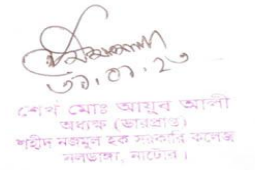 ৩১.০১.২৩
শেখ মোঃ আয়ুব আলী
অধ্যক্ষ (ভারপ্রাপ্ত)
শহীদ নজমুল হক সরকারি কলেজ
নলডাঙ্গা, নাটোর।